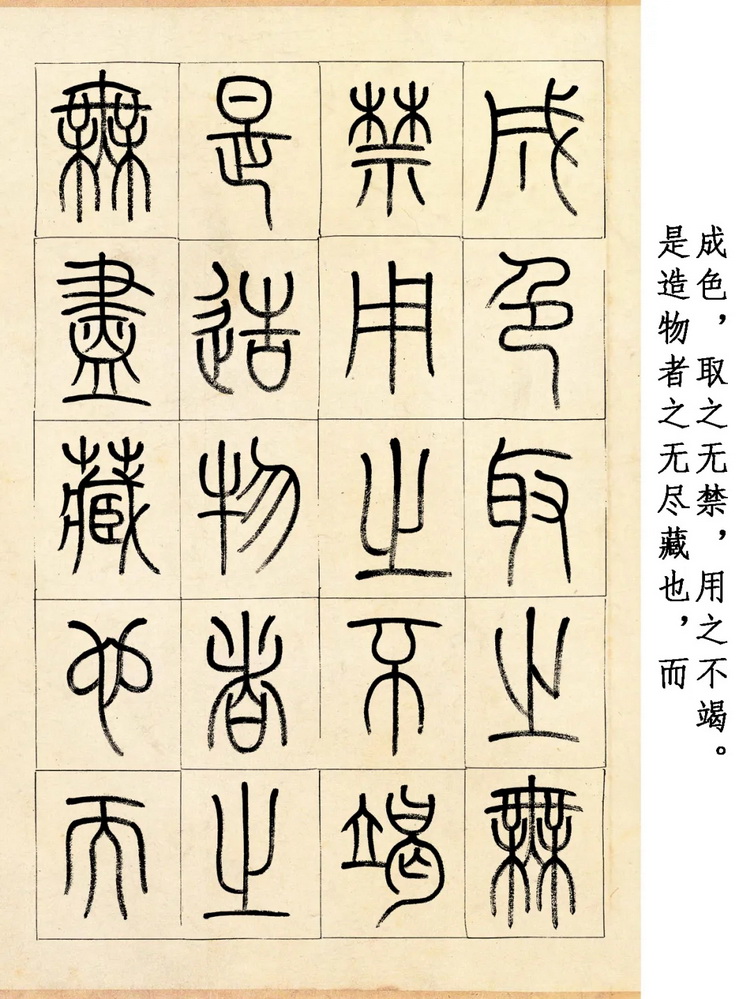 成色取之無
禁用之不竭
是造物者之
無盡藏也而
成色，取之无禁，用之不竭。
是造物者之无尽藏也，而